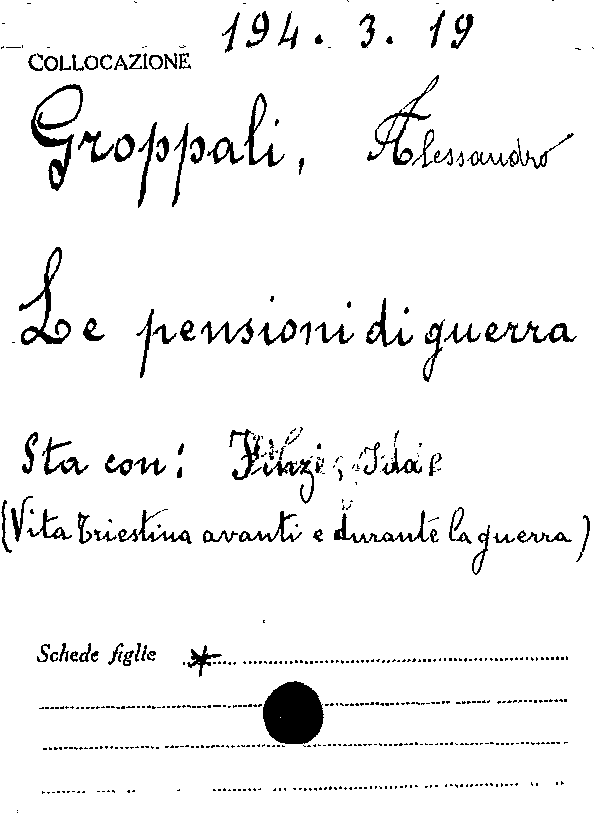 194. 3. 19
COLLOCAZIONE
Groppali, Alessandro
Le pensioni di guerra
Sta con: Finzi, Ida
(Vita triestina avanti e durante la guerra)
Schede figlie *